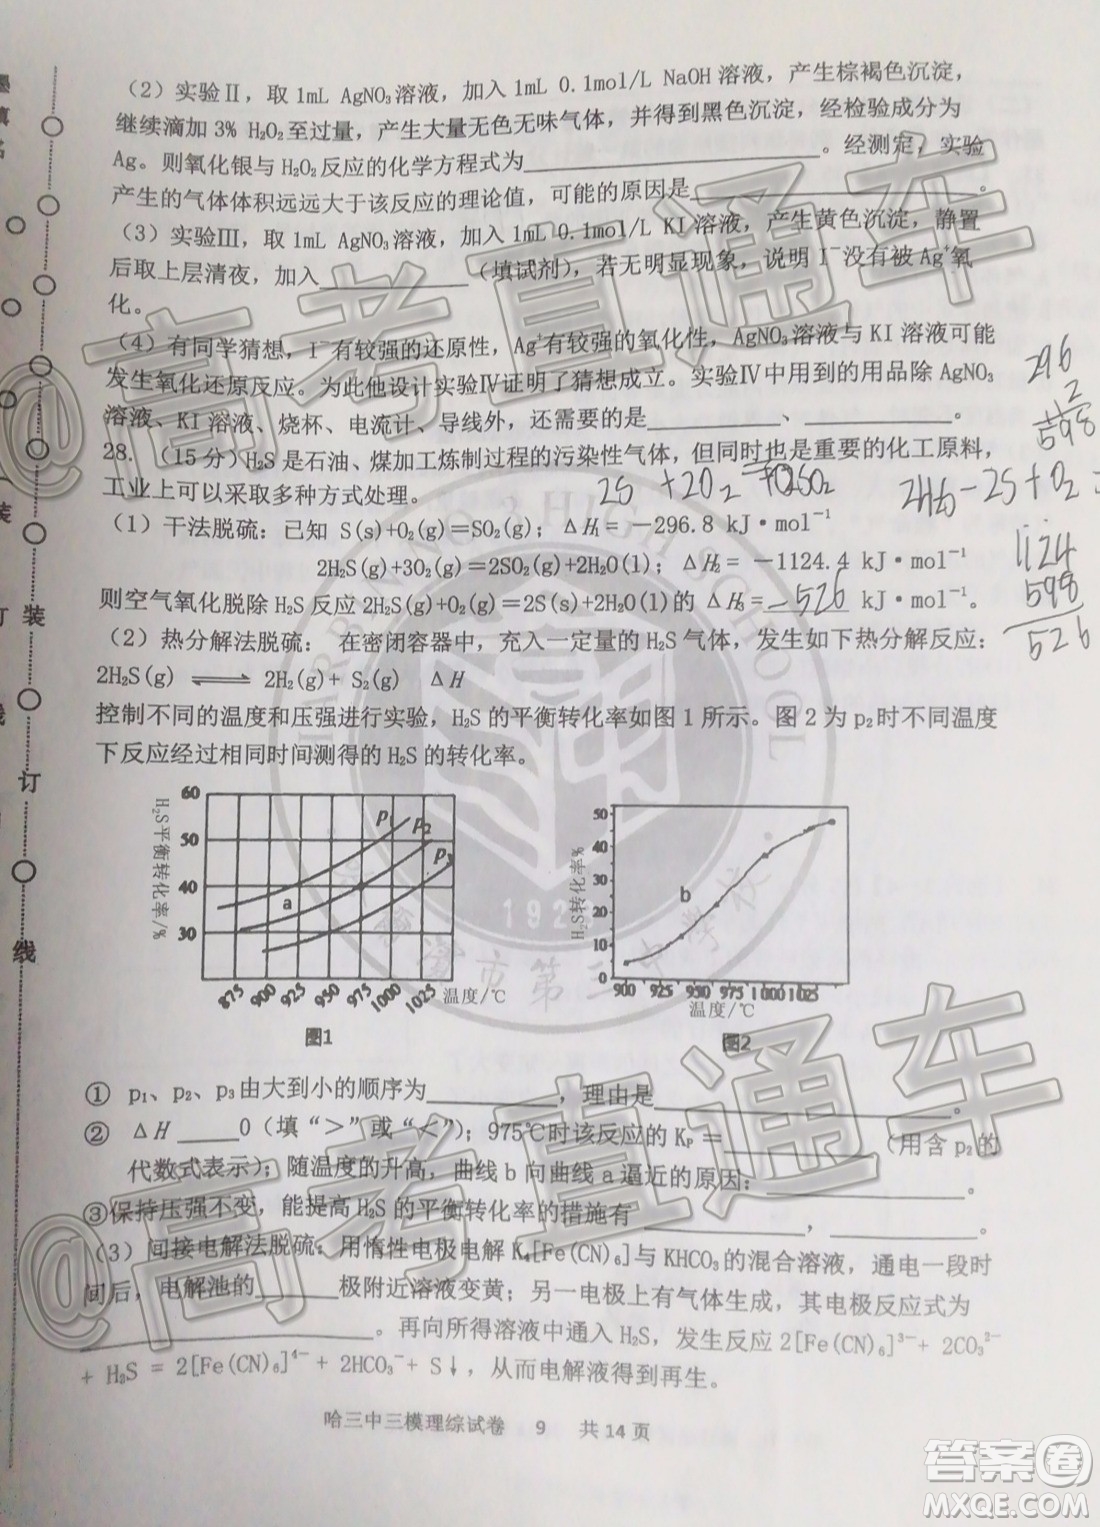 (2)实验Ⅱ，取 1mL AgNO₃溶液，加入 1mL 0.1mol/L NaOH 溶液，产生棕褐色沉淀，
继续滴加 3% H₂O₂至过量，产生大量无色无味气体，并得到黑色沉淀，经检验成分为
Ag。则氧化银与 H₂O₂反应的化学方程式为____________。经测定，实验
产生的气体体积远远大于该反应的理论值，可能的原因是____________。
(3)实验Ⅲ，取 1mL AgNO₃溶液，加入 1mL 0.1mol/L KI 溶液，产生黄色沉淀，静置
后取上层清夜，加入________（填试剂），若无明显现象，说明 I⁻没有被 Ag⁺氧
化。
(4)有同学猜想，I⁻有较强的还原性，Ag⁺有较强的氧化性，AgNO₃溶液与 KI 溶液可能
发生氧化还原反应。为此他设计实验Ⅳ证明了猜想成立。实验Ⅳ中用到的用品除 AgNO₃
溶液、KI 溶液、烧杯、电流计、导线外，还需要的是________、________。
28. (15 分) H₂S 是石油、煤加工炼制过程的污染性气体，但同时也是重要的化工原料，
工业上可以采取多种方式处理。
(1)干法脱硫：已知 S(s)+O₂(g)=SO₂(g)；ΔH₁= -296.8 kJ·mol⁻¹
2H₂S(g)+3O₂(g)=2SO₂(g)+2H₂O(l)；ΔH₂= -1124.4 kJ·mol⁻¹
则空气氧化脱除 H₂S 反应 2H₂S(g)+O₂(g)=2S(s)+2H₂O(l)的 ΔH₃= -526 kJ·mol⁻¹。
296
2
598
1124
598
526
(2)热分解法脱硫： 在密闭容器中，充入一定量的 H₂S 气体，发生如下热分解反应：
2H₂S(g) ⇌ 2H₂(g)+ S₂(g) ΔH
控制不同的温度和压强进行实验，H₂S 的平衡转化率如图 1 所示。图 2 为 p₂时不同温度
下反应经过相同时间测得的 H₂S 的转化率。
H₂S平衡转化率/%
60
50
40
30
p₁
p₂
p₃
a
875 900 925 950 975 1000 1025 温度/℃
图1
H₂S转化率%
50
40
30
20
10
0
b
900 925 950 975 1000 1025
温度/℃
图2
① p₁、p₂、p₃由大到小的顺序为________，理由是____________。
② ΔH ____0（填“>”或“<”）；975℃时该反应的 Kₚ = ________（用含 p₂的
代数式表示）；随温度的升高，曲线 b 向曲线 a 逼近的原因：____________。
③保持压强不变，能提高 H₂S 的平衡转化率的措施有 ________，________。
(3)间接电解法脱硫：用惰性电极电解 K₄[Fe(CN)₆]与 KHCO₃的混合溶液，通电一段时
间后，电解池的______极附近溶液变黄；另一电极上有气体生成，其电极反应式为
____________。再向所得溶液中通入 H₂S，发生反应 2[Fe(CN)₆]³⁻+ 2CO₃²⁻
+ H₂S = 2[Fe(CN)₆]⁴⁻+ 2HCO₃⁻+ S↓，从而电解液得到再生。
哈三中三模理综试卷 9 共 14 页
@高考直通车
@高考直通车
HARBIN NO.3 HIGH SCHOOL
哈尔滨市第三中学校
192
装
订
线
答案圈
MXQE.COM